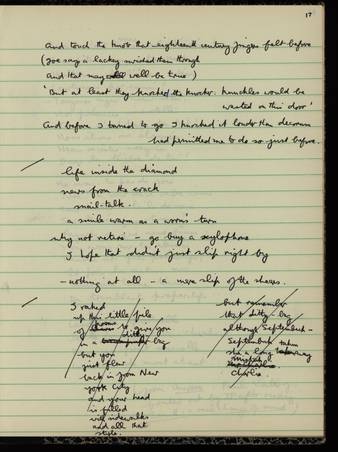 17
And touch the knob that eighteenth century fingers felt before
(Joe says a lackey avoided them though
And that may well be true)
'But at least they knocked the knocker. Knuckles would be
wasted on this door'
And before I turned to go I knocked it louder than decorum
had permitted me to do so just before.
life inside the diamond
news from the crack
snail-talk.
a smile warm as a worm's turn
why not retire - go buy a xylophone
I hope that didn't just slip right by
- nothing at all - a mere slip of the shears.
I raked
up this little pile
of to give you
in a ditty bag
but you
just flew
back in from New
York City
and your head
is filled
with sidewalks
and all that
style.
but remember
that ditty-bag
although September -
September takes
a long way
Charlie.